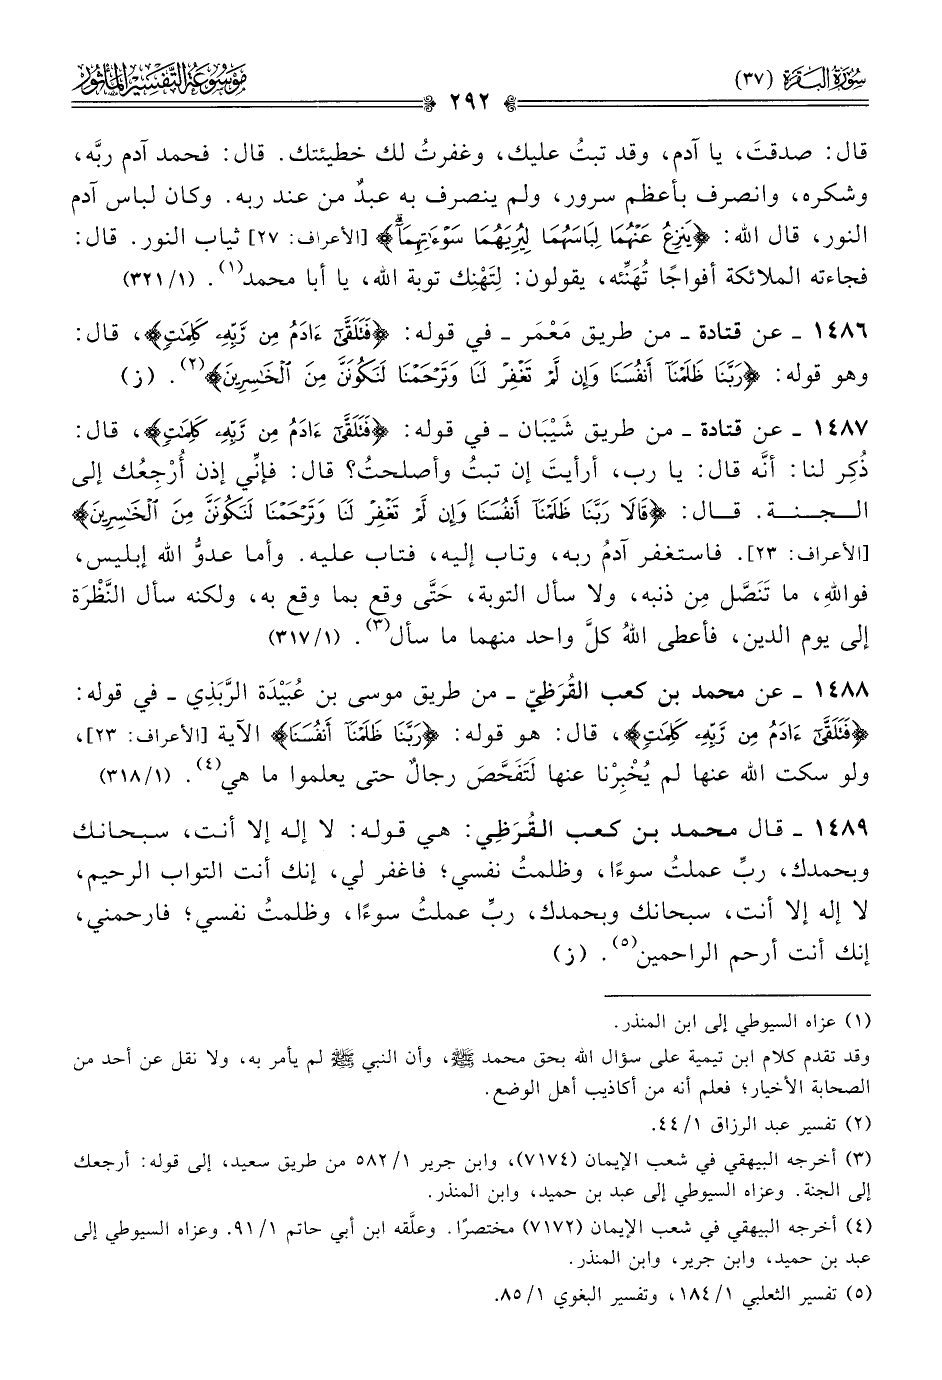 سُورَةُ البَقَرَة (٣٧)
٢٩٢
مَوْسُوعَةُ التَّفْسِيرِ المَأْثُور
قال: صدقتَ، يا آدم، وقد تبتُ عليك، وغفرتُ لك خطيئتك. قال: فحمد آدم ربَّه،
وشكره، وانصرف بأعظم سرور، ولم ينصرف به عبدٌ من عند ربه. وكان لباس آدم
النور، قال الله: ﴿يَنزِعُ عَنْهُمَا لِبَاسَهُمَا لِيُرِيَهُمَا سَوْءَٰتِهِمَآۗ﴾ [الأعراف: ٢٧] ثياب النور. قال:
فجاءته الملائكة أفواجًا تُهَنِّئه، يقولون: لِتَهْنِك توبة الله، يا أبا محمد(١). (٣٢١/١)
١٤٨٦ ـ عن قتادة ـ من طريق مَعْمَر ـ في قوله: ﴿فَتَلَقَّىٰٓ ءَادَمُ مِن رَّبِّهِۦ كَلِمَٰتٍ﴾، قال:
وهو قوله: ﴿رَبَّنَا ظَلَمْنَآ أَنفُسَنَا وَإِن لَّمْ تَغْفِرْ لَنَا وَتَرْحَمْنَا لَنَكُونَنَّ مِنَ ٱلْخَٰسِرِينَ﴾(٢). (ز)
١٤٨٧ ـ عن قتادة ـ من طريق شَيْبَان ـ في قوله: ﴿فَتَلَقَّىٰٓ ءَادَمُ مِن رَّبِّهِۦ كَلِمَٰتٍ﴾، قال:
ذُكِر لنا: أنَّه قال: يا رب، أرأيتَ إن تبتُ وأصلحتُ؟ قال: فإنِّي إذن أُرْجِعُك إلى
الـجـنـة. قـال: ﴿قَالَا رَبَّنَا ظَلَمْنَآ أَنفُسَنَا وَإِن لَّمْ تَغْفِرْ لَنَا وَتَرْحَمْنَا لَنَكُونَنَّ مِنَ ٱلْخَٰسِرِينَ﴾
[الأعراف: ٢٣]. فاستغفر آدمُ ربه، وتاب إليه، فتاب عليه. وأما عدوُّ الله إبليس،
فواللهِ، ما تَنَصَّل مِن ذنبه، ولا سأل التوبة، حَتَّى وقع بما وقع به، ولكنه سأل النَّظْرَة
إلى يوم الدين، فأعطى اللهُ كلَّ واحد منهما ما سأل(٣). (٣١٧/١)
١٤٨٨ ـ عن محمد بن كعب القُرَظِيِّ ـ من طريق موسى بن عُبَيْدَة الرَّبَذِي ـ في قوله:
﴿فَتَلَقَّىٰٓ ءَادَمُ مِن رَّبِّهِۦ كَلِمَٰتٍ﴾، قال: هو قوله: ﴿رَبَّنَا ظَلَمْنَآ أَنفُسَنَا﴾ الآية [الأعراف: ٢٣]،
ولو سكت الله عنها لم يُخْبِرْنا عنها لَتَفَحَّصَ رجالٌ حتى يعلموا ما هي(٤). (٣١٨/١)
١٤٨٩ ـ قال محمد بن كعب القُرَظِي: هي قوله: لا إله إلا أنت، سبحانك
وبحمدك، ربِّ عملتُ سوءًا، وظلمتُ نفسي؛ فاغفر لي، إنك أنت التواب الرحيم،
لا إله إلا أنت، سبحانك وبحمدك، ربِّ عملتُ سوءًا، وظلمتُ نفسي؛ فارحمني،
إنك أنت أرحم الراحمين(٥). (ز)
(١) عزاه السيوطي إلى ابن المنذر.
وقد تقدم كلام ابن تيمية على سؤال الله بحق محمد ﷺ، وأن النبي ﷺ لم يأمر به، ولا نقل عن أحد من
الصحابة الأخيار؛ فعلم أنه من أكاذيب أهل الوضع.
(٢) تفسير عبد الرزاق ٤٤/١.
(٣) أخرجه البيهقي في شعب الإيمان (٧١٧٤)، وابن جرير ٥٨٢/١ من طريق سعيد، إلى قوله: أرجعك
إلى الجنة. وعزاه السيوطي إلى عبد بن حميد، وابن المنذر.
(٤) أخرجه البيهقي في شعب الإيمان (٧١٧٢) مختصرًا. وعلَّقه ابن أبي حاتم ٩١/١. وعزاه السيوطي إلى
عبد بن حميد، وابن جرير، وابن المنذر.
(٥) تفسير الثعلبي ١٨٤/١، وتفسير البغوي ٨٥/١.